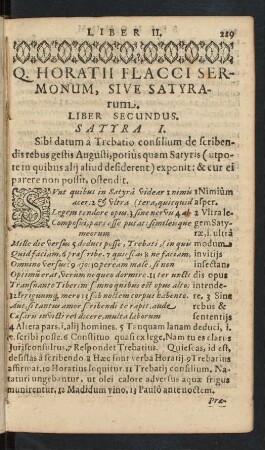 LIBER II. 229
Q. HORATII FLACCI SER-
MONUM, SIVE SATYRA-
rum.
LIBER SECUNDUS.
SATYRA I.
Sibi datum à Trebatio consilium de scriben-
dis rebus gestis Augusti, potiùs quam Satyris (utpo-
te in quibus alij aliud desiderent) exponit: & cur ei
parere non possit, ostendit.
SUnt quibus in Satyrâ videar 1 nimis 1 Nimiùm
acer, & 2 vltra (tera, quicquid asper.
Legem tendere opus, 3 sine nervis 4 al- 2 Vltra le-
Composui, pars esse putat: similesque gem Saty-
meorum ræ, i. ultrà
Mille die versus 5 deduci posse, Trebati, modum
Quid faciam, 6 præscribe. 7 quiescas 8 ne faciam, in vitijs
Omnino versus? 9 ajo 10 peream malè, si non insectan-
Optimũ erat, verùm nequeo dormire. 11 ter uncti dis opus
Transnanto Tiberim somno quibus est opus alto. intende-
12 Irrigũumq, mero 13 sub noctem corpus habento. re, 3 Sine
Aut, si tantus amor scribendi te rapit, aude rebus &
Cæsaris invicti res dicere, multa laborum sententijs
4 Altera pars, i. alij homines. 5 Tanquam lanam deduci, i.
scribi posse. 6 Constituo quasi ex lege, Nam tu es clarus
Jurisconsultus. 7 Respondet Trebatius. Quiescas, id est,
desistas à scribendo 8 Hæc sunt verba Horatij. 9 Trebatius
affirmat. 10 Horatius loquitur. 11 Trebatij consilium. Na-
taturi ungebantur, ut olei calore adversus aquæ frigus
munirentur. 12 Madidum vino. 13 Paulò ante noctem.
Præ-